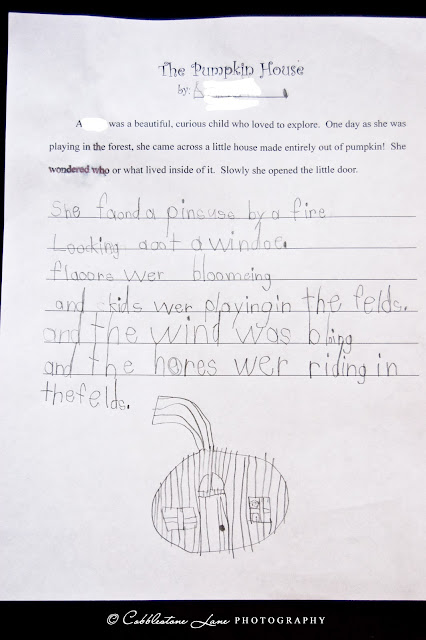 The Pumpkin House
by: A
A was a beautiful, curious child who loved to explore. One day as she was
playing in the forest, she came across a little house made entirely out of pumpkin! She
wondered who or what lived inside of it. Slowly she opened the little door.
She faond a pinsuss by a fire
Loocking aoot a windoe.
flaoors wer bloomeing
and kids wer playing in the felds.
and the wind was bling
and the hores wer riding in
the felds.
© Cobblestone Lane PHOTOGRAPHY